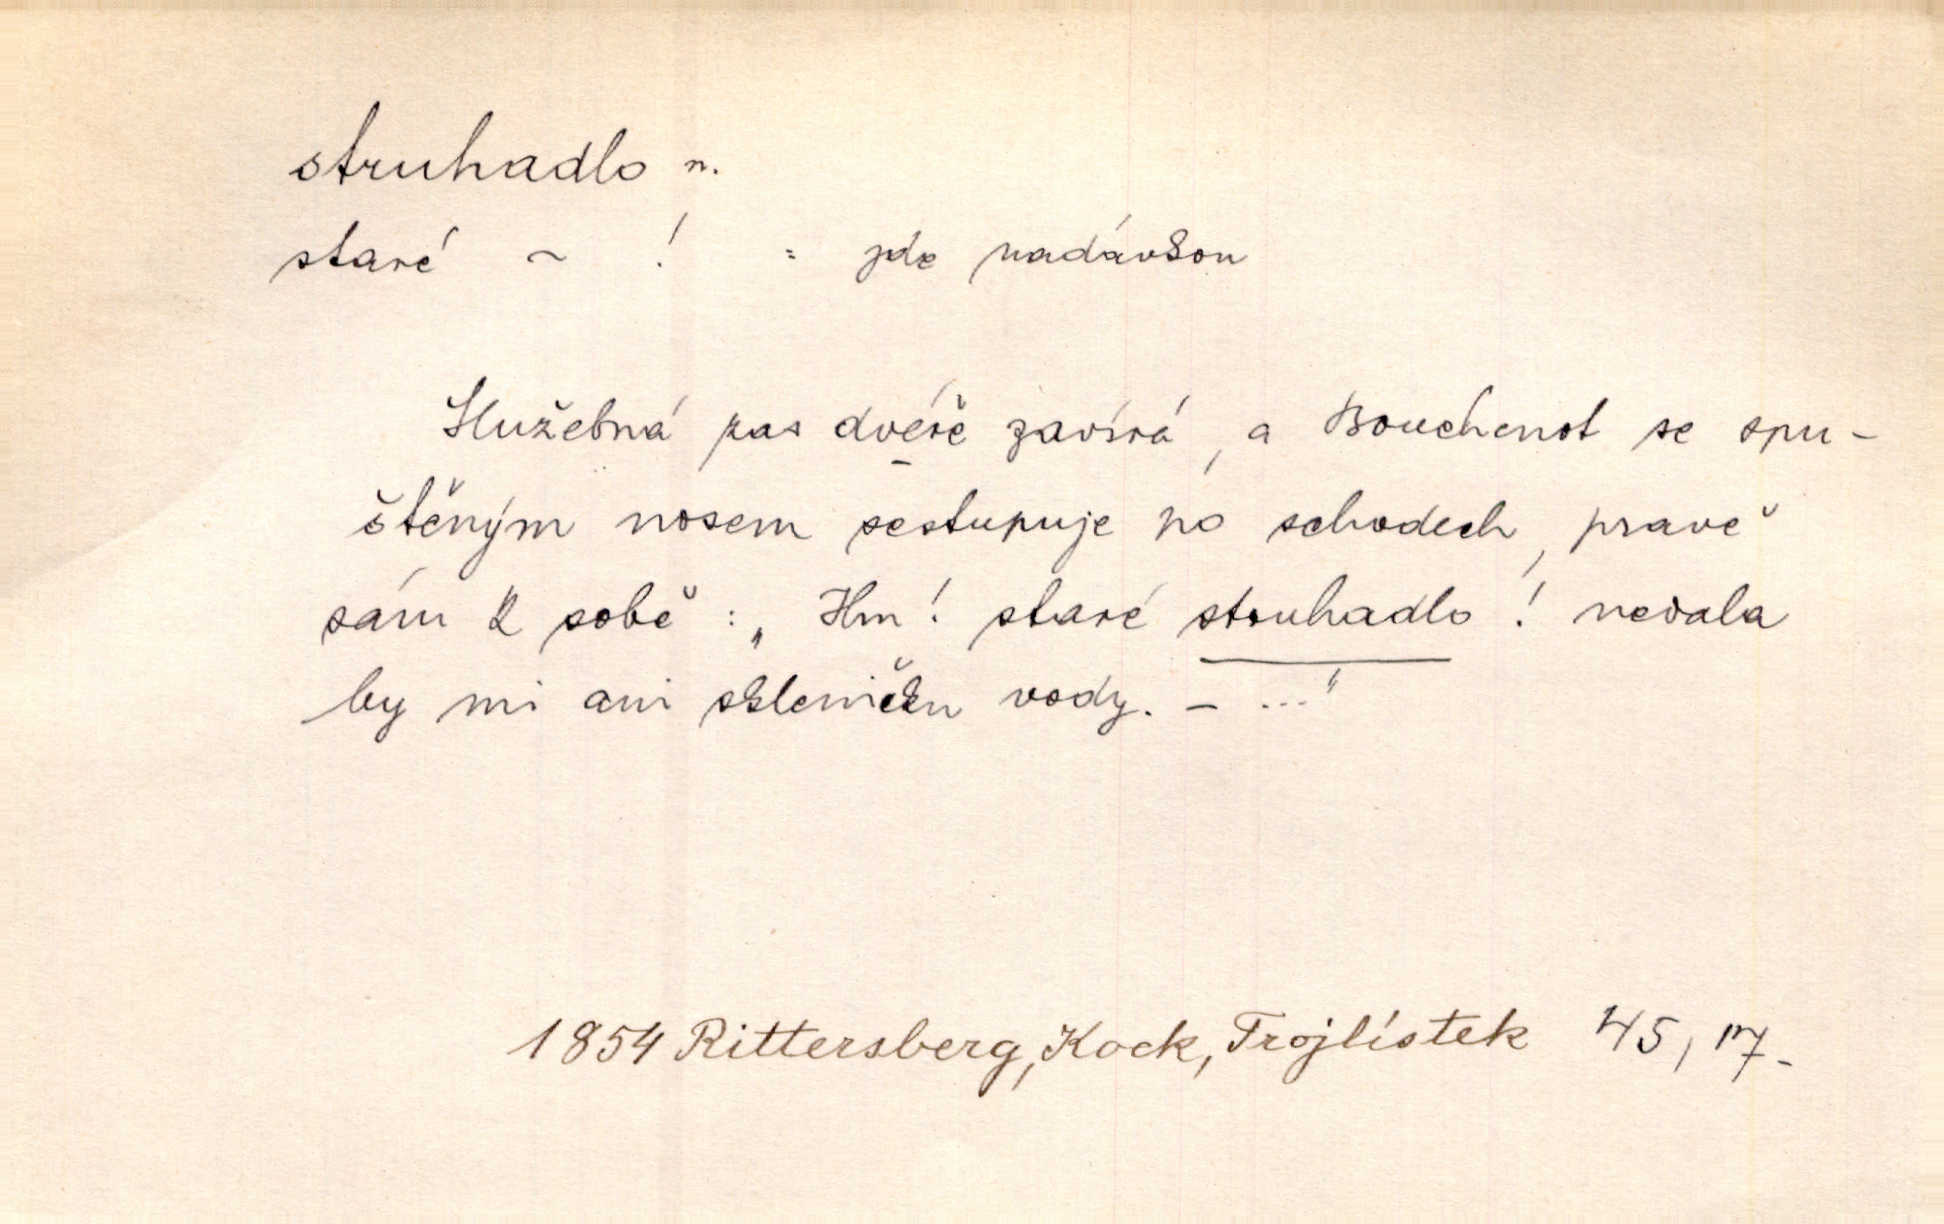 struhadlo n.
staré ~ ! = zde nadávkou
Služebná zas dvéře zavírá, a Bouchenot se spu-
štěným nosem sestupuje po schodech, pravě
sám k sobě : „Hm! staré struhadlo! nedala
by mi ani skleničku vody. – ..."
1854 Rittersberg, Kock, Trojlístek 45, 17.